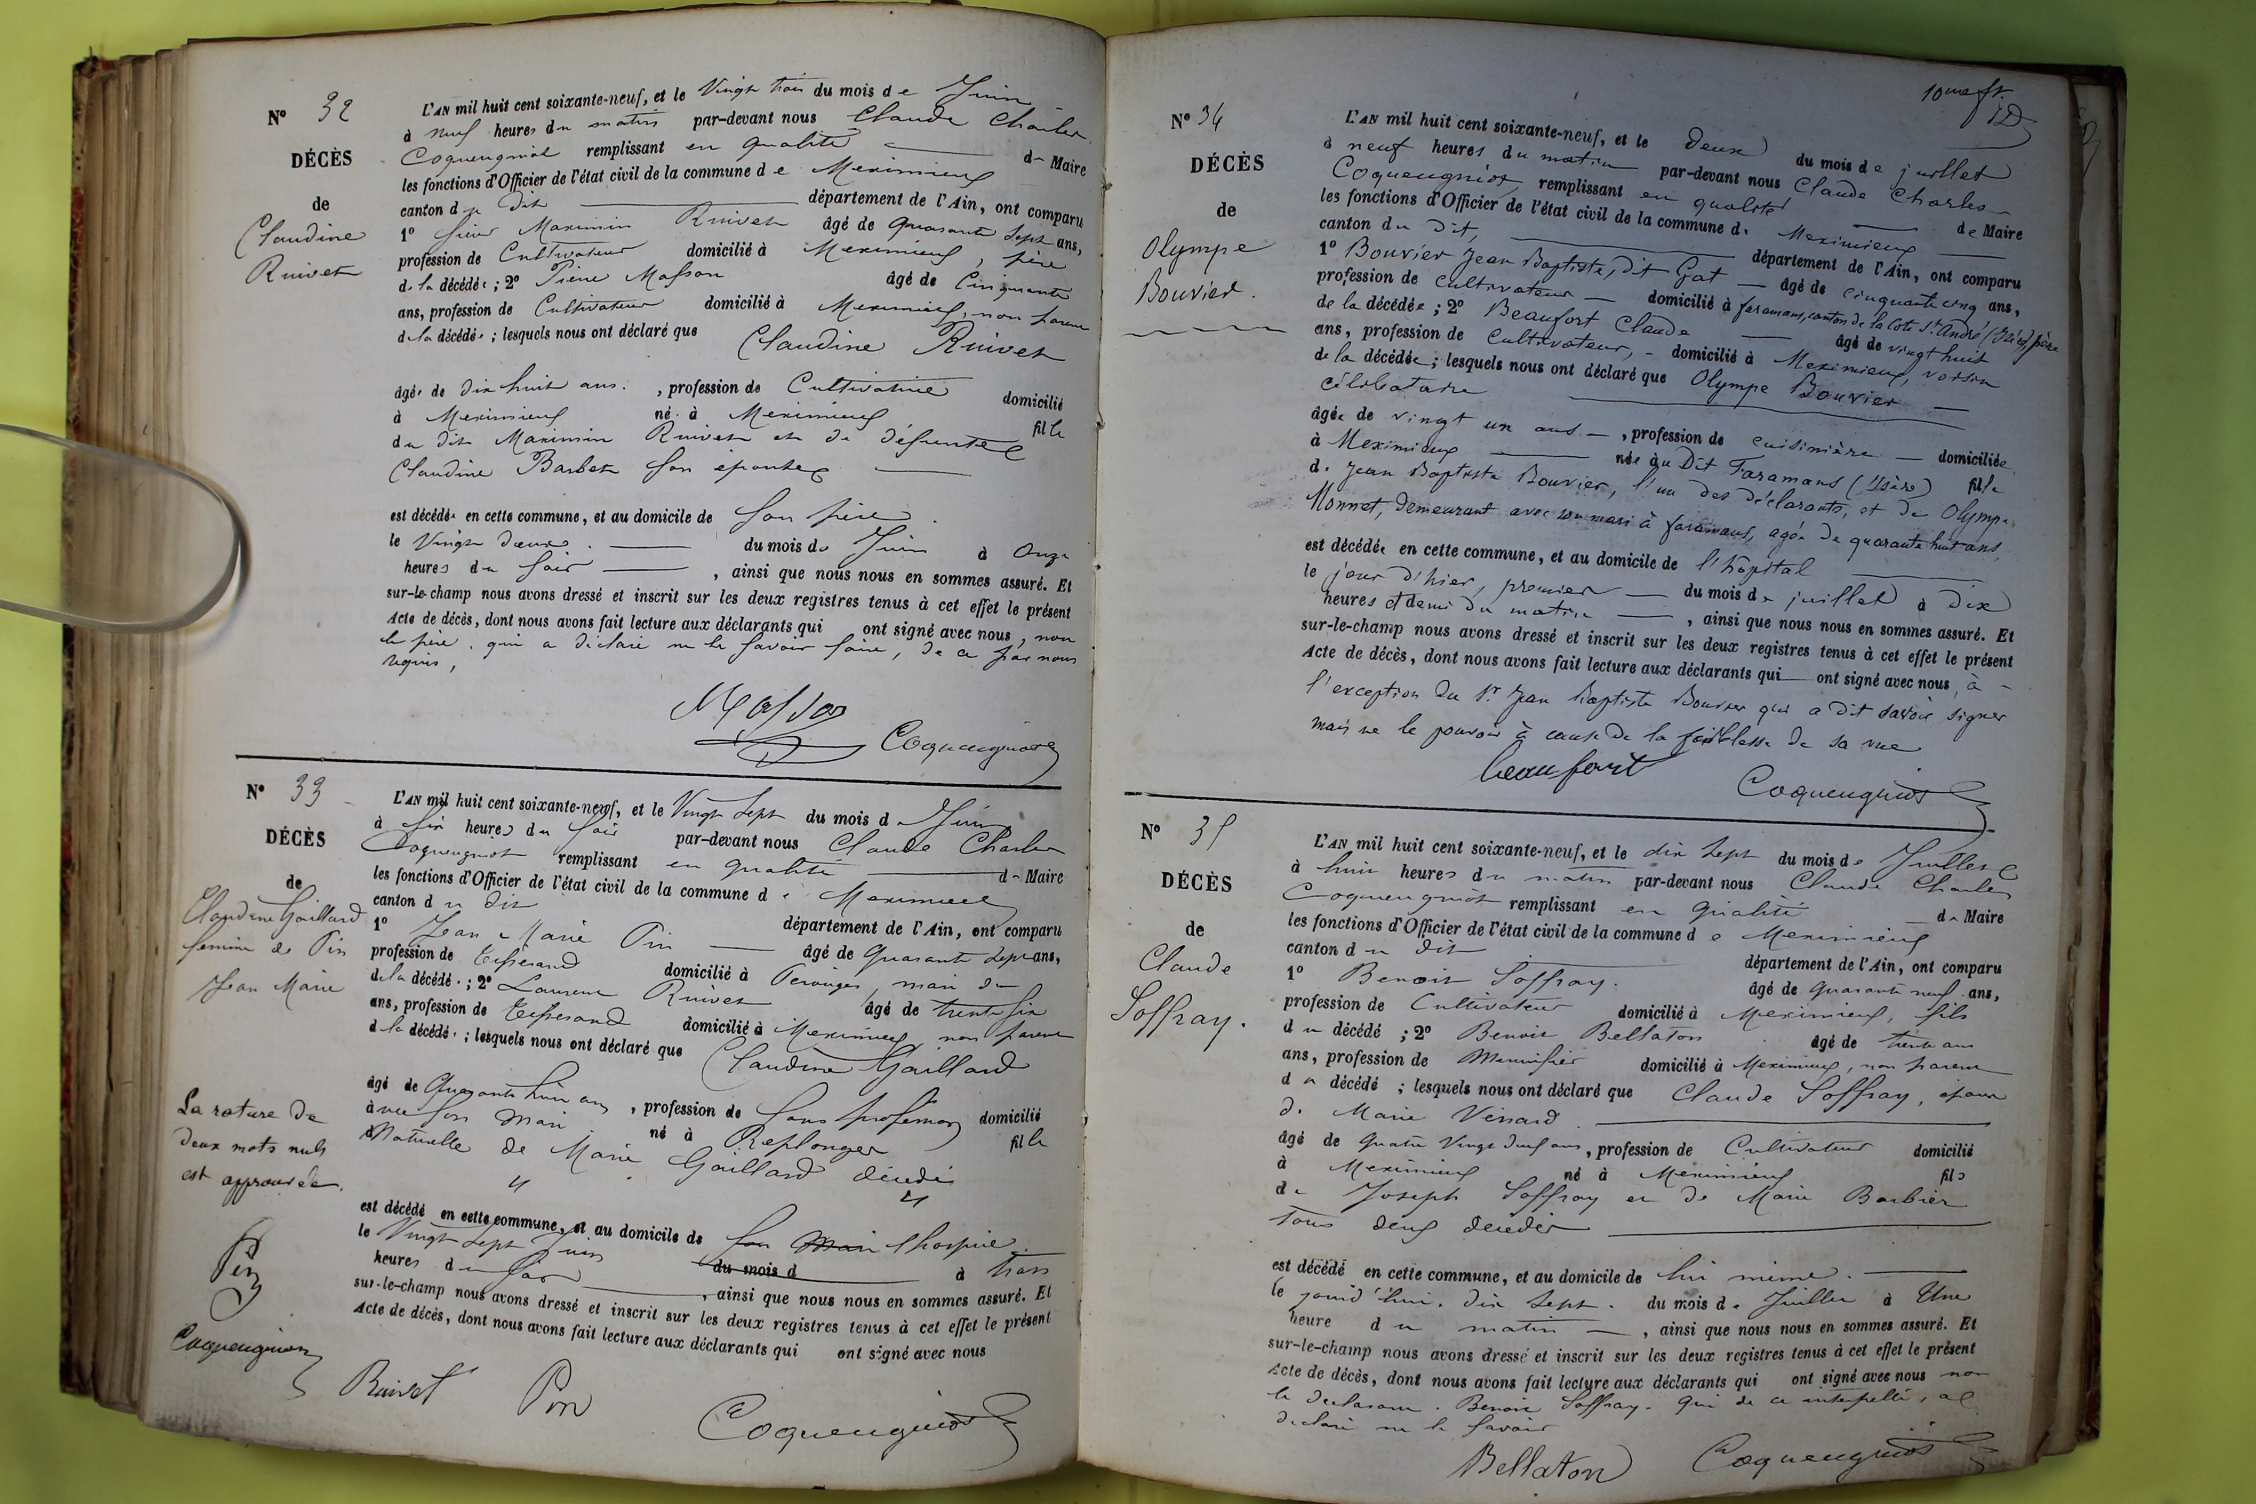 Nº 32
DÉCÈS
de
Claudine
Ruivet
L'AN mil huit cent soixante-neuf, et le Vingt trois du mois de Juin
à neuf heures du matin par-devant nous Claude Charles
Coquengniot remplissant en qualité de Maire
les fonctions d'Officier de l'état civil de la commune de Meximieux
canton du dit département de l'Ain, ont comparu
1º sieur Maximin Ruivet âgé de quarante sept ans,
profession de Cultivateur domicilié à Meximieux, père
de la décédée ; 2º Pierre Masson âgé de Cinquante
ans, profession de Cultivateur domicilié à Meximieux, non parent
de la décédée ; lesquels nous ont déclaré que Claudine Ruivet
âgée de dix huit ans. , profession de Cultivatrice domicilié
à Meximieux né à Meximieux fille
du dit Maximin Ruivet et de défunte
Claudine Barbet son épouse
est décédée en cette commune, et au domicile de son père.
le Vingt deux. du mois de Juin à Onze
heures du soir , ainsi que nous nous en sommes assuré. Et
sur-le-champ nous avons dressé et inscrit sur les deux registres tenus à cet effet le présent
Acte de décès, dont nous avons fait lecture aux déclarants qui ont signé avec nous, non
le père, qui a déclaré ne le savoir faire, de ce par nous
requis,
Masson
Coquengniot
Nº 33
DÉCÈS
de
Claudine Gaillard
femme de Pin
Jean Marie
L'AN mil huit cent soixante-neuf, et le Vingt sept du mois de Juin
à six heures du soir par-devant nous Claude Charles
Coquengniot remplissant en qualité de Maire
les fonctions d'Officier de l'état civil de la commune de Meximieux
canton du dit département de l'Ain, ont comparu
1º Jean Marie Pin âgé de quarante sept ans,
profession de tisserand domicilié à Perouges, mari de
de la décédé. ; 2º Laurent Ruivet âgé de trente six
ans, profession de tisserand domicilié à Meximieux, non parent
de la décédé. ; lesquels nous ont déclaré que Claudine Gaillard
âgé de Quarante huit ans, profession de sans profession domicilié
avec son mari né à Replonges fille
Naturelle de Marie Gaillard décédée
est décédé en cette commune, et au domicile de son mari l'hospice.
le Vingt sept Juin du mois d à trois
heures du soir , ainsi que nous nous en sommes assuré. Et
sur-le-champ nous avons dressé et inscrit sur les deux registres tenus à cet effet le présent
Acte de décès, dont nous avons fait lecture aux déclarants qui ont signé avec nous
La rature de
deux mots nuls
est approuvée.
Pin
Coquengniot
Ruivet Pin
Coquengniot
10me ft.
Nº 34
DÉCÈS
de
Olympe
Bouvier.
L'AN mil huit cent soixante-neuf, et le Deux du mois de juillet
à neuf heures du matin par-devant nous Claude Charles
Coquengniot, remplissant en qualité de Maire
les fonctions d'Officier de l'état civil de la commune de Meximieux
canton du Dit, département de l'Ain, ont comparu
1º Bouvier Jean Baptiste, dit Gat âgé de cinquante cinq ans,
profession de cultivateur domicilié à faramans, canton de la Cote St André (Isère), père
de la décédée ; 2º Beaufort Claude âgé de vingt huit
ans, profession de Cultivateur, domicilié à Meximieux, voisin
de la décédée ; lesquels nous ont déclaré que Olympe Bouvier
célibataire
âgée de vingt un ans , profession de cuisinière domiciliée
à Meximieux née à au Dit Faramans (Isère) fille
d. Jean Baptiste Bouvier, l'un des déclarants, et de Olympe
Monnet, demeurant avec son mari à faramans, agée de quarante huit ans,
est décédée en cette commune, et au domicile de l'hôpital
le jour d'hier, premier du mois de juillet à Dix
heures et demi du matin , ainsi que nous nous en sommes assuré. Et
sur-le-champ nous avons dressé et inscrit sur les deux registres tenus à cet effet le présent
Acte de décès, dont nous avons fait lecture aux déclarants qui ont signé avec nous, à
l'exception du Sr Jean Baptiste Bouvier qui a dit savoir signer
mais ne le pouvoir à cause de la faiblesse de sa vue
Beaufort
Coquengniot
Nº 35
DÉCÈS
de
Claude
Soffray.
L'AN mil huit cent soixante-neuf, et le dix sept du mois de Juillet
à huit heures du matin par-devant nous Claude Charles
Coquengniot remplissant en qualité de Maire
les fonctions d'Officier de l'état civil de la commune de Meximieux
canton du dit département de l'Ain, ont comparu
1º Benoit Soffray. âgé de quarante neuf ans,
profession de Cultivateur domicilié à Meximieux, fils
du décédé ; 2º Benoit Bellaton âgé de trente ans
ans, profession de Menuisier domicilié à Meximieux, non parent
du décédé ; lesquels nous ont déclaré que Claude Soffray, époux
de Marie Venard
âgé de quatre Vingt ans, profession de Cultivateur domicilié
à Meximieux né à Meximieux fils
de Joseph Soffray et de Marie Barbier
tous deux décédés
est décédé en cette commune, et au domicile de lui même.
le jourd'hui, dix sept. du mois de Juillet à Une
heure du matin , ainsi que nous nous en sommes assuré. Et
sur-le-champ nous avons dressé et inscrit sur les deux registres tenus à cet effet le présent
Acte de décès, dont nous avons fait lecture aux déclarants qui ont signé avec nous non
le déclarant. Benoit Soffray. qui de ce interpellé, a
déclaré ne le savoir
Bellaton
Coquengniot